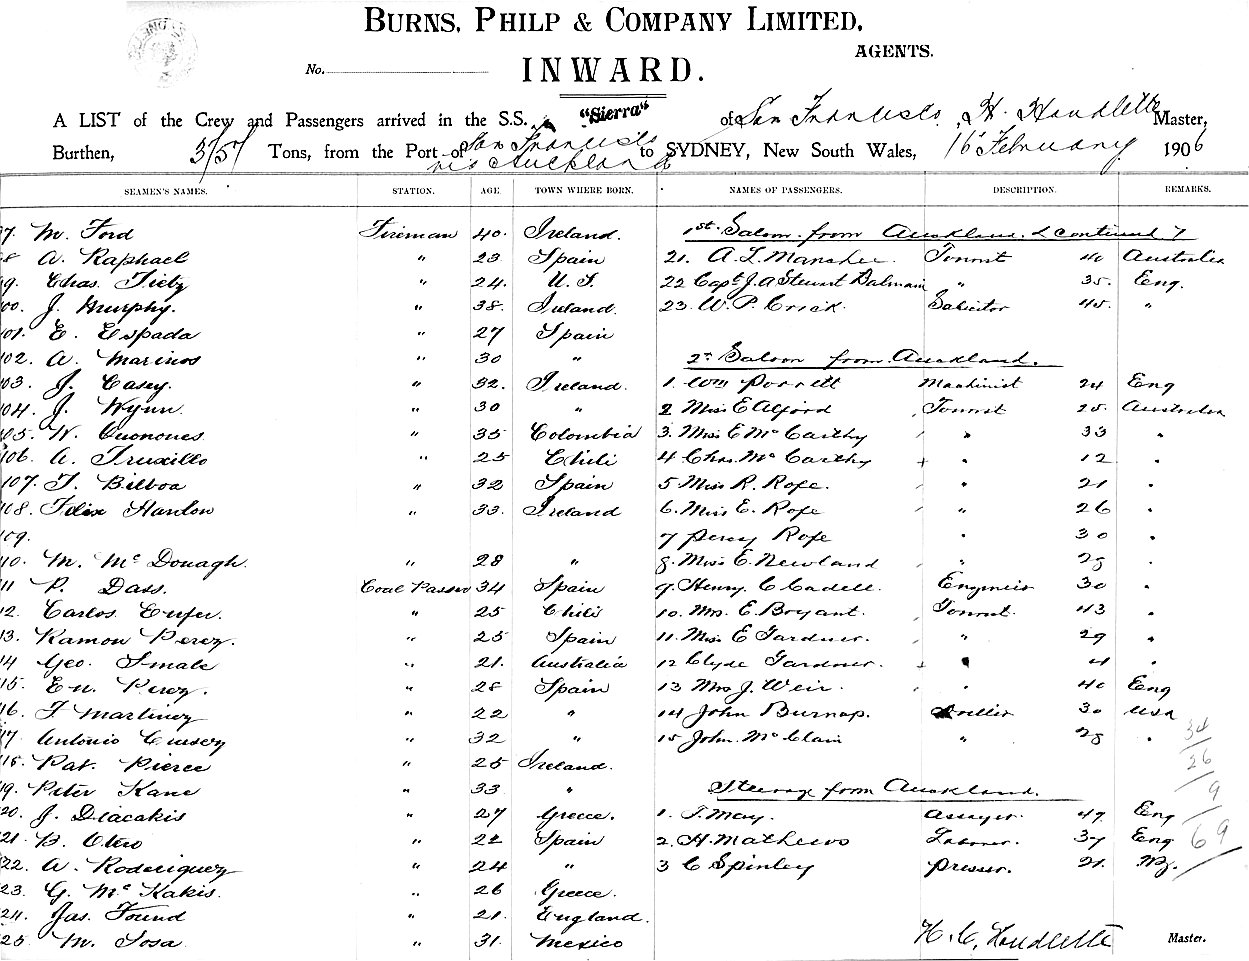 BURNS, PHILP & COMPANY LIMITED,
AGENTS.
No.
INWARD.
A LIST of the Crew and Passengers arrived in the S.S. "Sierra" of San Francisco, H. Houdlette Master,
Burthen, 3151 Tons, from the Port of San Francisco via Auckland to SYDNEY, New South Wales, 16th February 1906
SEAMEN'S NAMES. STATION. AGE. TOWN WHERE BORN. NAMES OF PASSENGERS. DESCRIPTION. REMARKS.
97. M. Ford Fireman 40. Ireland. 1st Saloon from Auckland (continued)
8 A. Raphael " 23 Spain 21. A. L. Tourist 40 Australia
99. Chas. Tietz " 24. U.S. 22 Capt. J. A Stewart Balmain " 35. Eng.
00. J. Murphy. " 38. Ireland. 23. W. P. Crick. Solicitor 45. "
101. E. Espada " 27 Spain
102. A. Marinos " 30 " 2nd Saloon from Auckland.
103. J. Casey. " 32. Ireland. 1. Wm Porrett Machinist 24 Eng
104. J. Wynn. " 30 " 2 Miss E Alford Tourist 25. Australia
105. N. Quonones " 35 Colombia 3. Miss E McCarthy " 33 "
106. A. Truxillo " 25 Chili 4 Chas. McCarthy + " 12 "
107. T. Bilboa " 32 Spain 5 Miss R. Rope. " 21 "
108. Felix Hanlon " 33. Ireland 6. Miss E. Rope " 26 "
109. 7 Percy Rope " 30 "
10. M. McDonagh. " 28 " 8. Miss E. Newland " 25 "
11 P. Dass. Coal Passer 34 Spain 9. Henry C Cadell. Engineer 30 "
12. Carlos " 25 Chili 10. Mrs. E. Bryant. Tourist. 43 "
13. Ramon Perez. " 25 Spain 11. Miss E Gardner. " 29 "
14 Geo. Smale " 21. Australia 12 Clyde Gardner. + " 4 "
15. Perez. " 28 Spain 13 Mrs J. Weir. " 40 Eng
16. F Martinez " 22 " 14 John Burnap. 30 USA
17. Antonio " 32 " 15 John McClain " 28 "
18. Pat. Pierce " 25 Ireland.
19. Peter Kane " 33 " Steerage from Auckland.
20. J. Diacakis " 27 Greece. 1. T. May. assayer. 47 Eng
21. B. Otero " 22 Spain 2. H. Mathews Laborer. 37 Eng
22. A. Roderiguez " 24 " 3 C Spinley presser. 21. NZ.
34
26
9
69
23. G. McKakis. " 26 Greece.
24. Jas. Found " 21. England.
25 M. Sosa " 31. Mexico H. C. Houdlette Master.